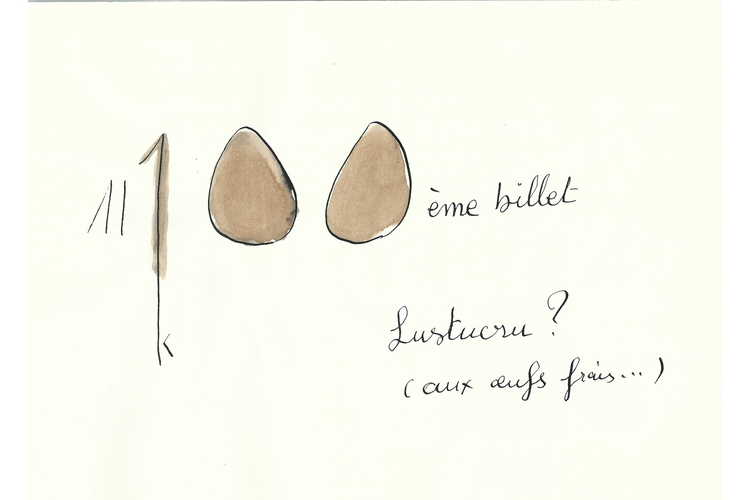 11100ème billet
Lustucru ?
(aux œufs frais...)